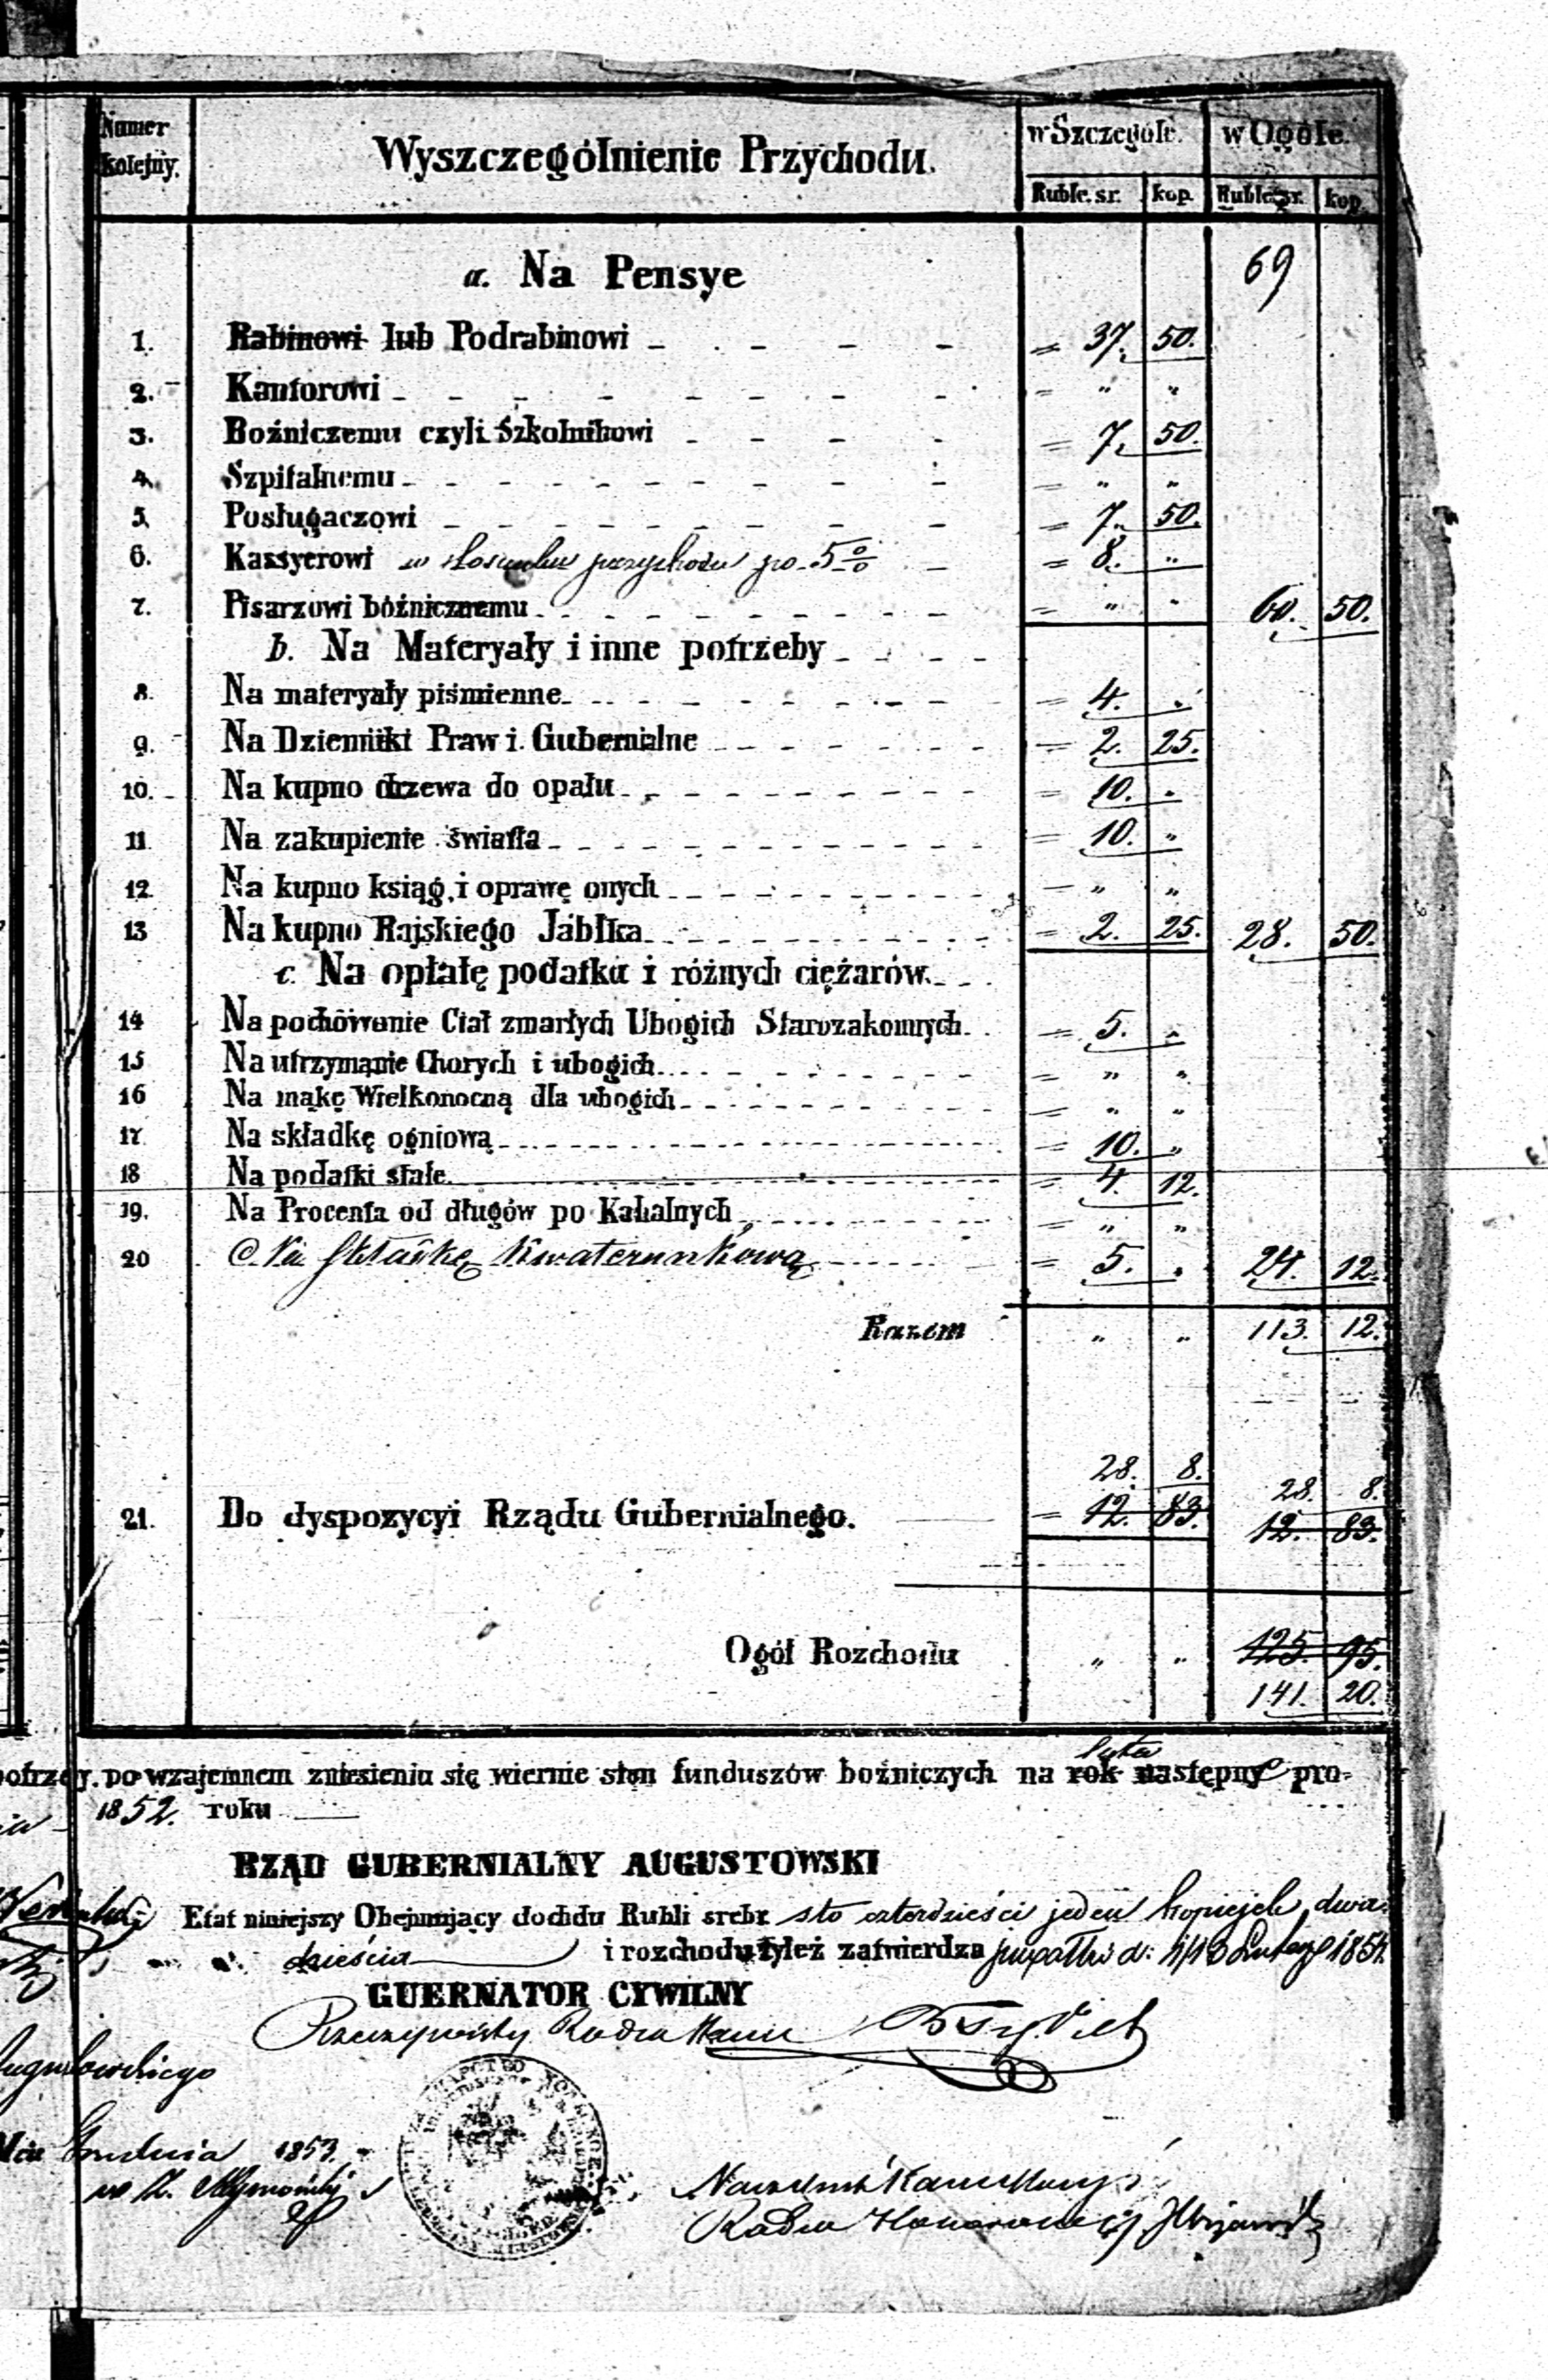 Numer kolejny. Wyszczególnienie Przychodu. w Szczególe. w Ogóle.
Ruble. sr. kop. Ruble sr. kop.
a. Na Pensye 69
1. Rabinowi lub Podrabinowi = 37. 50.
2. Kantorowi = " "
3. Bożniczemu czyli Szkolnikowi = 7. 50.
4. Szpitalnemu = " "
5. Posługaczowi = 7. 50.
6. Kassyerowi w stosunku przychodu po 5 % = 8. "
7. Pisarzowi bóźnicznemu = " " 60. 50.
b. Na Materyały i inne potrzeby
8. Na materyały piśmienne = 4. "
9. Na Dzienniki Praw i Gubernialne = 2. 25.
10. Na kupno drzewa do opału = 10. "
11 Na zakupienie światła = 10. "
12 Na kupno ksiąg, i oprawę onych = " "
13 Na kupno Rajskiego Jabłka = 2. 25. 28. 50.
c. Na opłatę podatku i różnych ciężarów.
14 Na pochówanie Ciał zmarłych Ubogich Starozakonnych = 5. "
15 Na utrzymanie Chorych i ubogich = " "
16 Na mąkę Wielkonocną dla ubogich = " "
17 Na składkę ogniową = 10. "
18 Na podatki stałe = 4. 12.
19. Na Procenta od długów po Kahalnych = " "
20 Na Składkę Kwaterunkową = 5. " 24. 12.
Razem " " 113. 12.
28. 8. 28. 8.
21. Do dyspozycyi Rządu Gubernialnego. = 12. 83. 12. 83.
Ogół Rozchodu " " 125. 95.
141. 20.
lata
po wzajemnem zniesieniu się wiernie stan funduszów bożniczych na rok następny pro-
1852. roku
RZĄD GUBERNIALNY AUGUSTOWSKI
Etat niniejszy Obejmujący dochdu Rubli srebr sto czterdzieści jeden kopiejek dwa-
dzieścia i rozchodu tyleż zatwierdza Suwałki d: 1/13 Lutego 1854.
GUERNATOR CYWILNY
Rzeczywisty Radca Stanu
Augustowskiego
Grudnia 1853.
Naczelnik Kancellaryi
Radca Honorowy